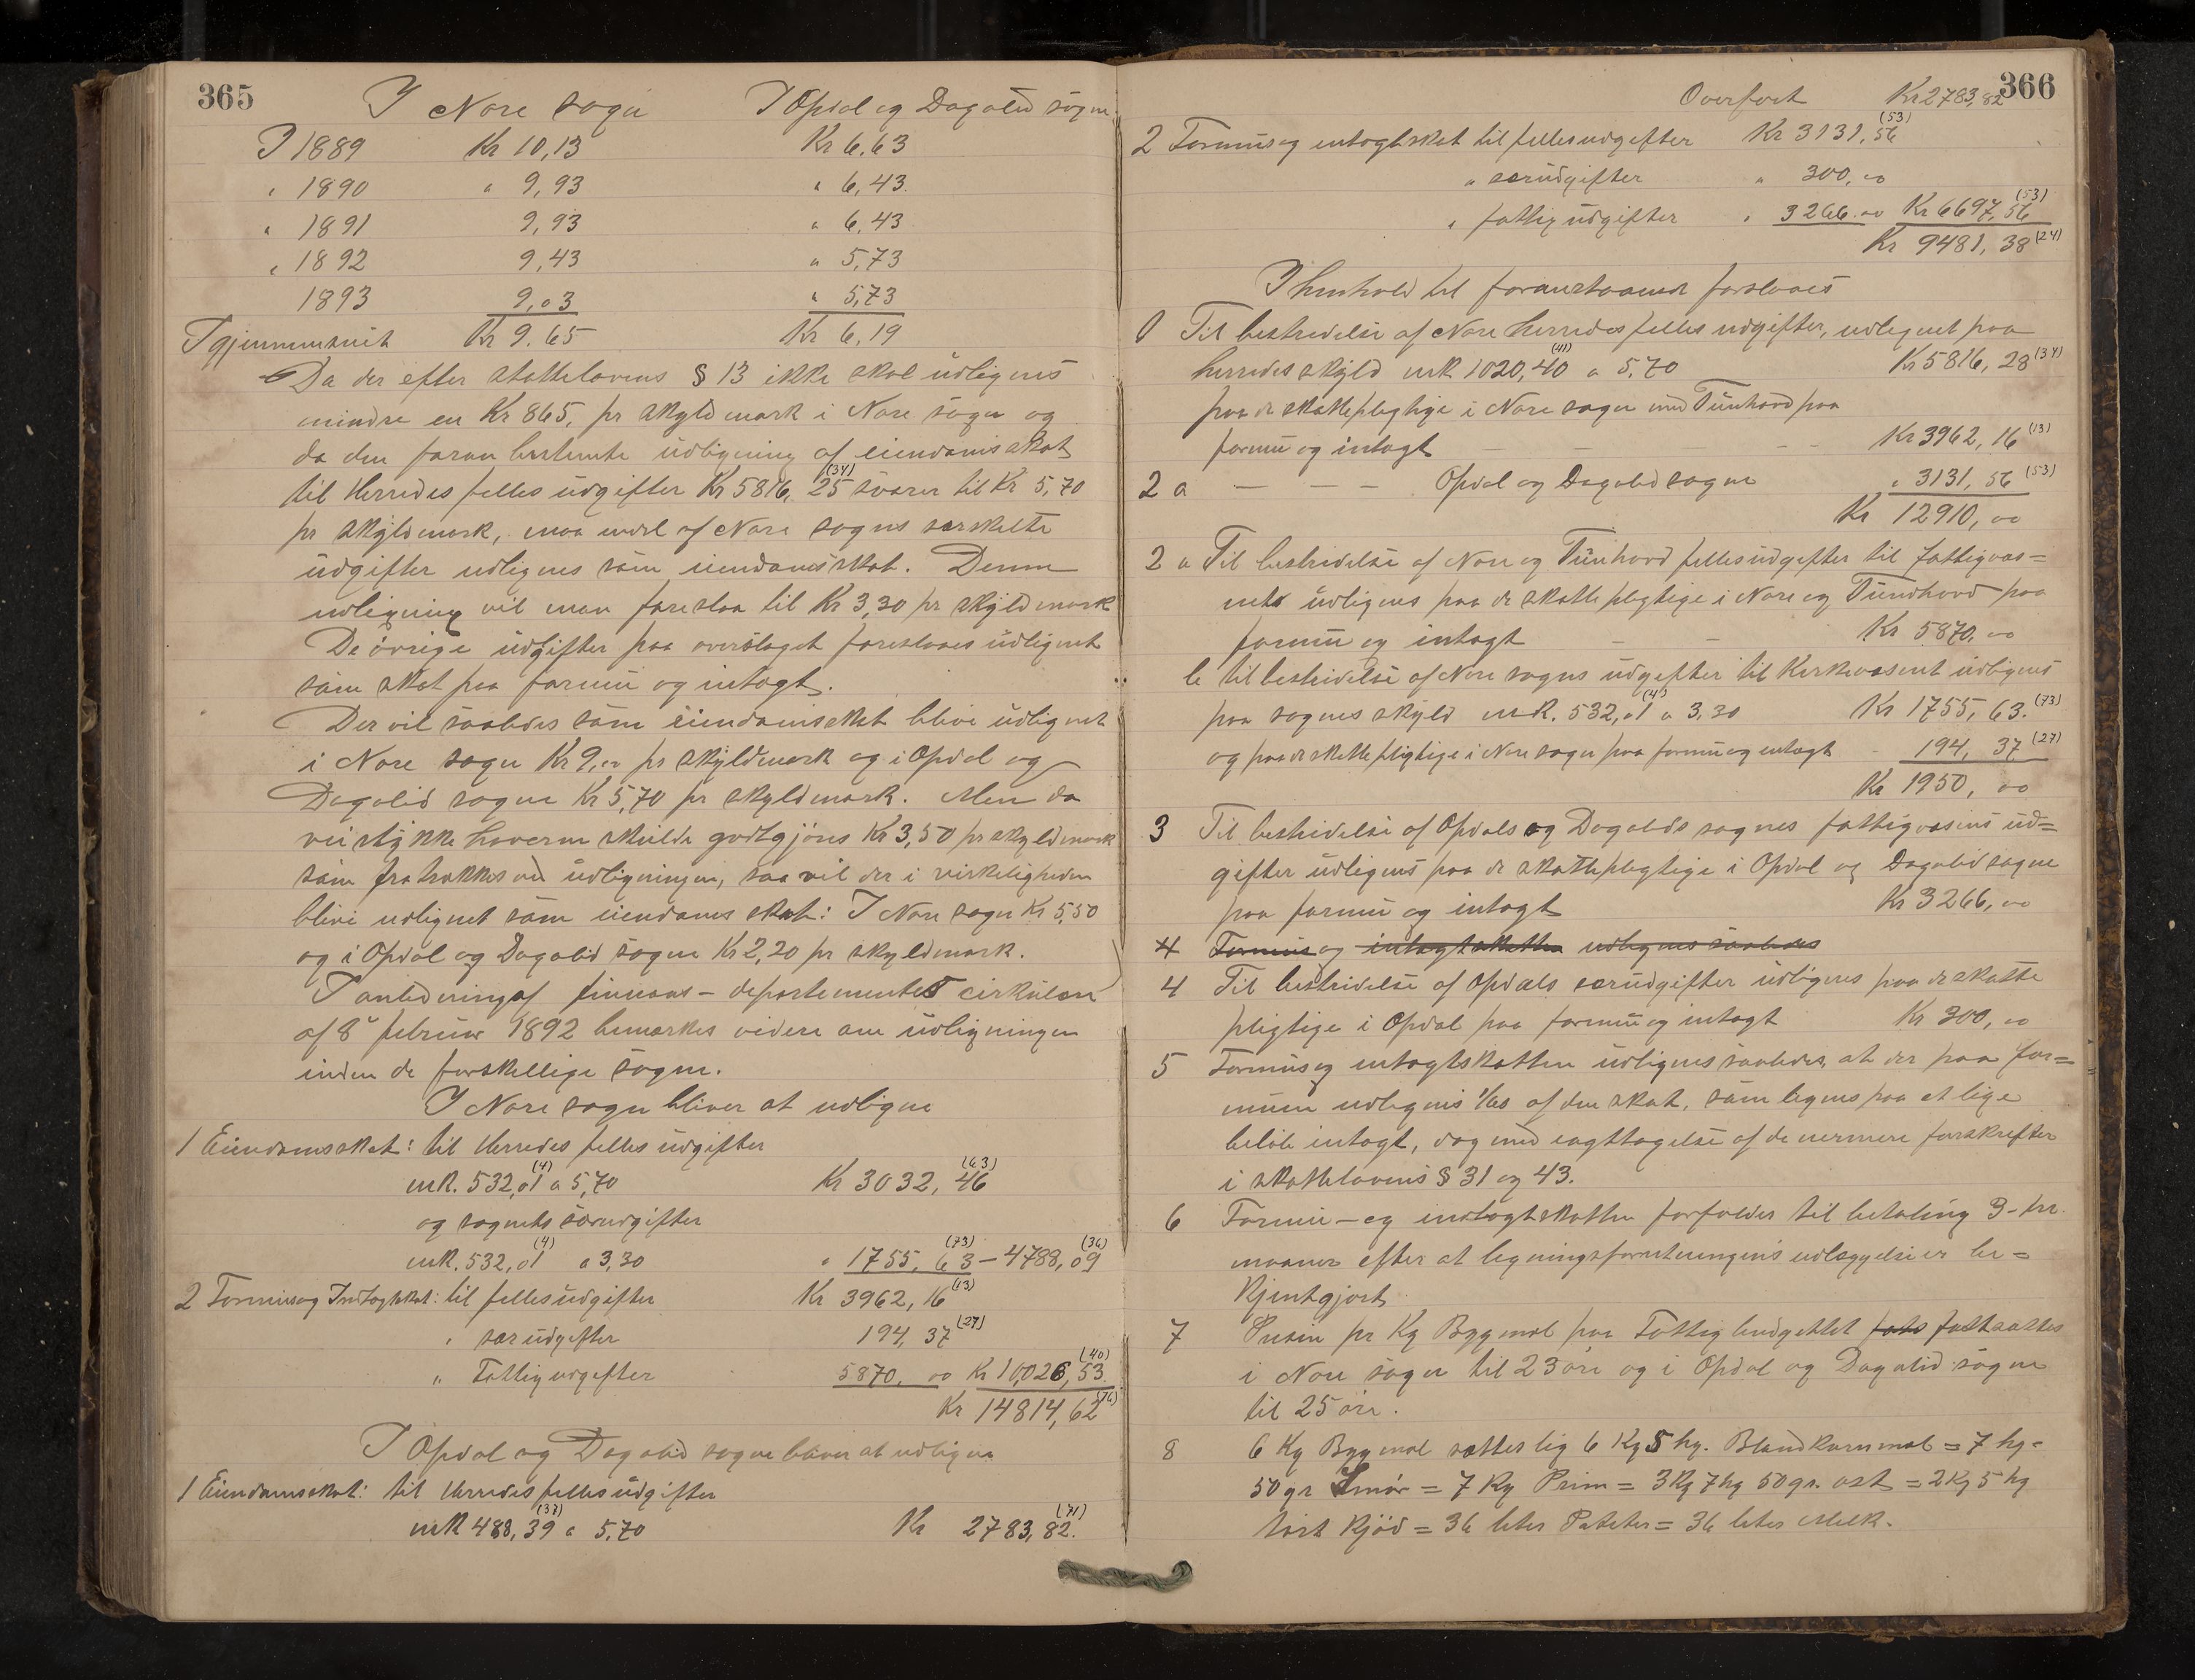 365
I Nore sogn I Opdal og Dagalid sogne
I 1889 Kr 10,13 Kr 6,63
" 1890 " 9,93 " 6,43
" 1891 9,93 " 6,43
" 1892 9,43 " 5,73
1893 9,03 " 5,73
I gjennemsnit Kr 9.65 Kr 6,19
Da der efter skattelovens § 13 ikke skal udlignes
mindre en Kr 865, pr skyldmark i Nore sogn og
da den foran bestemte udligning af eiendomsskat
til Herredes felles udgifter Kr 5816, 25 (34) svarer til Kr 5,70
pr skyldmark, maa endel af Nore sogns særskilte
udgifter udlignes som eiendomsskat. Denne
udligning vil man foreslaa til Kr 3,30 pr skyldmark
De øvrige udgifter paa overslaget foreslaaes udlignet
som skat paa formue og indtægt.
Der vil saaledes som eiendomsskat blive udlignet
i Nore sogn Kr 9,00 pr skyldmark og i Opdal og
Dagalid sogne Kr 5,70 pr skyldmark. Men da
veistykkehaverne skulde godtgjøres Kr 3,50 pr skyldmark
som fratrækkes ved udligningen, saa vil der i virkeligheden
blive udlignet som eiendoms skat: I Nore sogn Kr 5,50
og i Opdal og Dagalid sogne Kr 2,20 pr skyldmark.
I anledning af finans-departementets cirkulær
af 8 februar 1892 bemærkes videre om udligningen
inden de forskellige sogne.
I Nore sogn bliver at udligne
1 Eiendomsskat: til Herredes felles udgifter
mk. 532,01 (4) a 5,70 Kr 3032, 46 (63)
og sognets særudgifter
mk. 532,01 (4) a 3,30 " 1755, 63 (73) – 4788,09 (36)
2 Formue og Indtægtskat: til fellesudgifter Kr 3962, 16 (13)
" særudgifter 194, 37 (27)
" Fattigudgifter 5870, 00 Kr 10,026,53 (40)
Kr 14814,62 (76)
I Opdal og Dagalid sogne bliver at udligne
1 Eiendomsskat: til Herredes fellesudgifter
mk 488,39 (37) a 5,70 Kr 2783,82. (71)
366
Overført Kr 2783,82
2 Formue og indtægtskat til fellesudgifter Kr 3131,56 (53)
" særudgifter " 300,00
" fattigudgifter " 3266.00 Kr 6697,56 (53)
Kr 9481,38 (24)
I henhold til foranstaaende forslaaes
1 Til bestridelse af Nore Herredes felles udgifter, udlignet paa
herredes skyld mk 1020,40 (41) a 5,70 Kr 5816, 28 (34)
paa de skattepligtige i Nore sogn med Tunhovd paa
formue og indtægt – – – Kr 3962, 16 (13)
2 a – – – Opdal og Dagalid sogne " 3131, 56 (53)
Kr 12910, 00
2 a Til bestridelse af Nore og Tunhovd fellesudgifter til fattigvæs=
nets udlignes paa de skattepligtige i Nore og Tunhovd paa
formue og indtægt – – Kr 5870,00
b til bestridelse af Nore sogns udgifter til Kirkevæsenet udlignes
paa sognes skyld mk. 532,01 (4) a 3,30 Kr 1755, 63. (73)
og paa de skattepligtige i Nore sogn paa formue og indtægt - 194, 37 (27)
Kr 1950, 00
3 Til bestridelse af Opdals og Dagalids sognes fattigvæsens ud=
gifter udlignes paa de skattepligtige i Opdal og Dagalid sogne
paa formue og indtægt Kr 3266,00
4 Formue og indtægtskatten udlignes saaledes
4 Til bestridelse af Opdals særudgifter udlignes paa de skatte
pligtige i Opdal paa formue og indtægt Kr 300,00
5 Formue og indtægtskatten udlignes saaledes, at der paa for=
muen udlignes 1/60 af den skat, som lignes paa et lige
beløb indtægt, dog med iagttagelse af de nærmere forskrifter
i skattelovens § 31 og 43.
6 Formue- og indtægtskatten forfalder til betaling 3-tre
maaner efter at ligningsforretningens udlæggelse er be=
kjentgjort
7 Prisen pr Kg Bygmel paa Fattigbudgettet fats fastsættes
i Nore sogn til 23 øre og i Opdal og Dagalid sogne
til 25 øre.
8 6 Kg Bygmel sættes lig 6 Kg 5 hg. Blandkornmel = 7 hg.
50 gr Smør = 7 Kg Prim = 3 Kg 7 hg 50 gr. ost = 2 Kg 5 hg
tørt Kjød = 36 liter Poteter = 36 liter Melk.